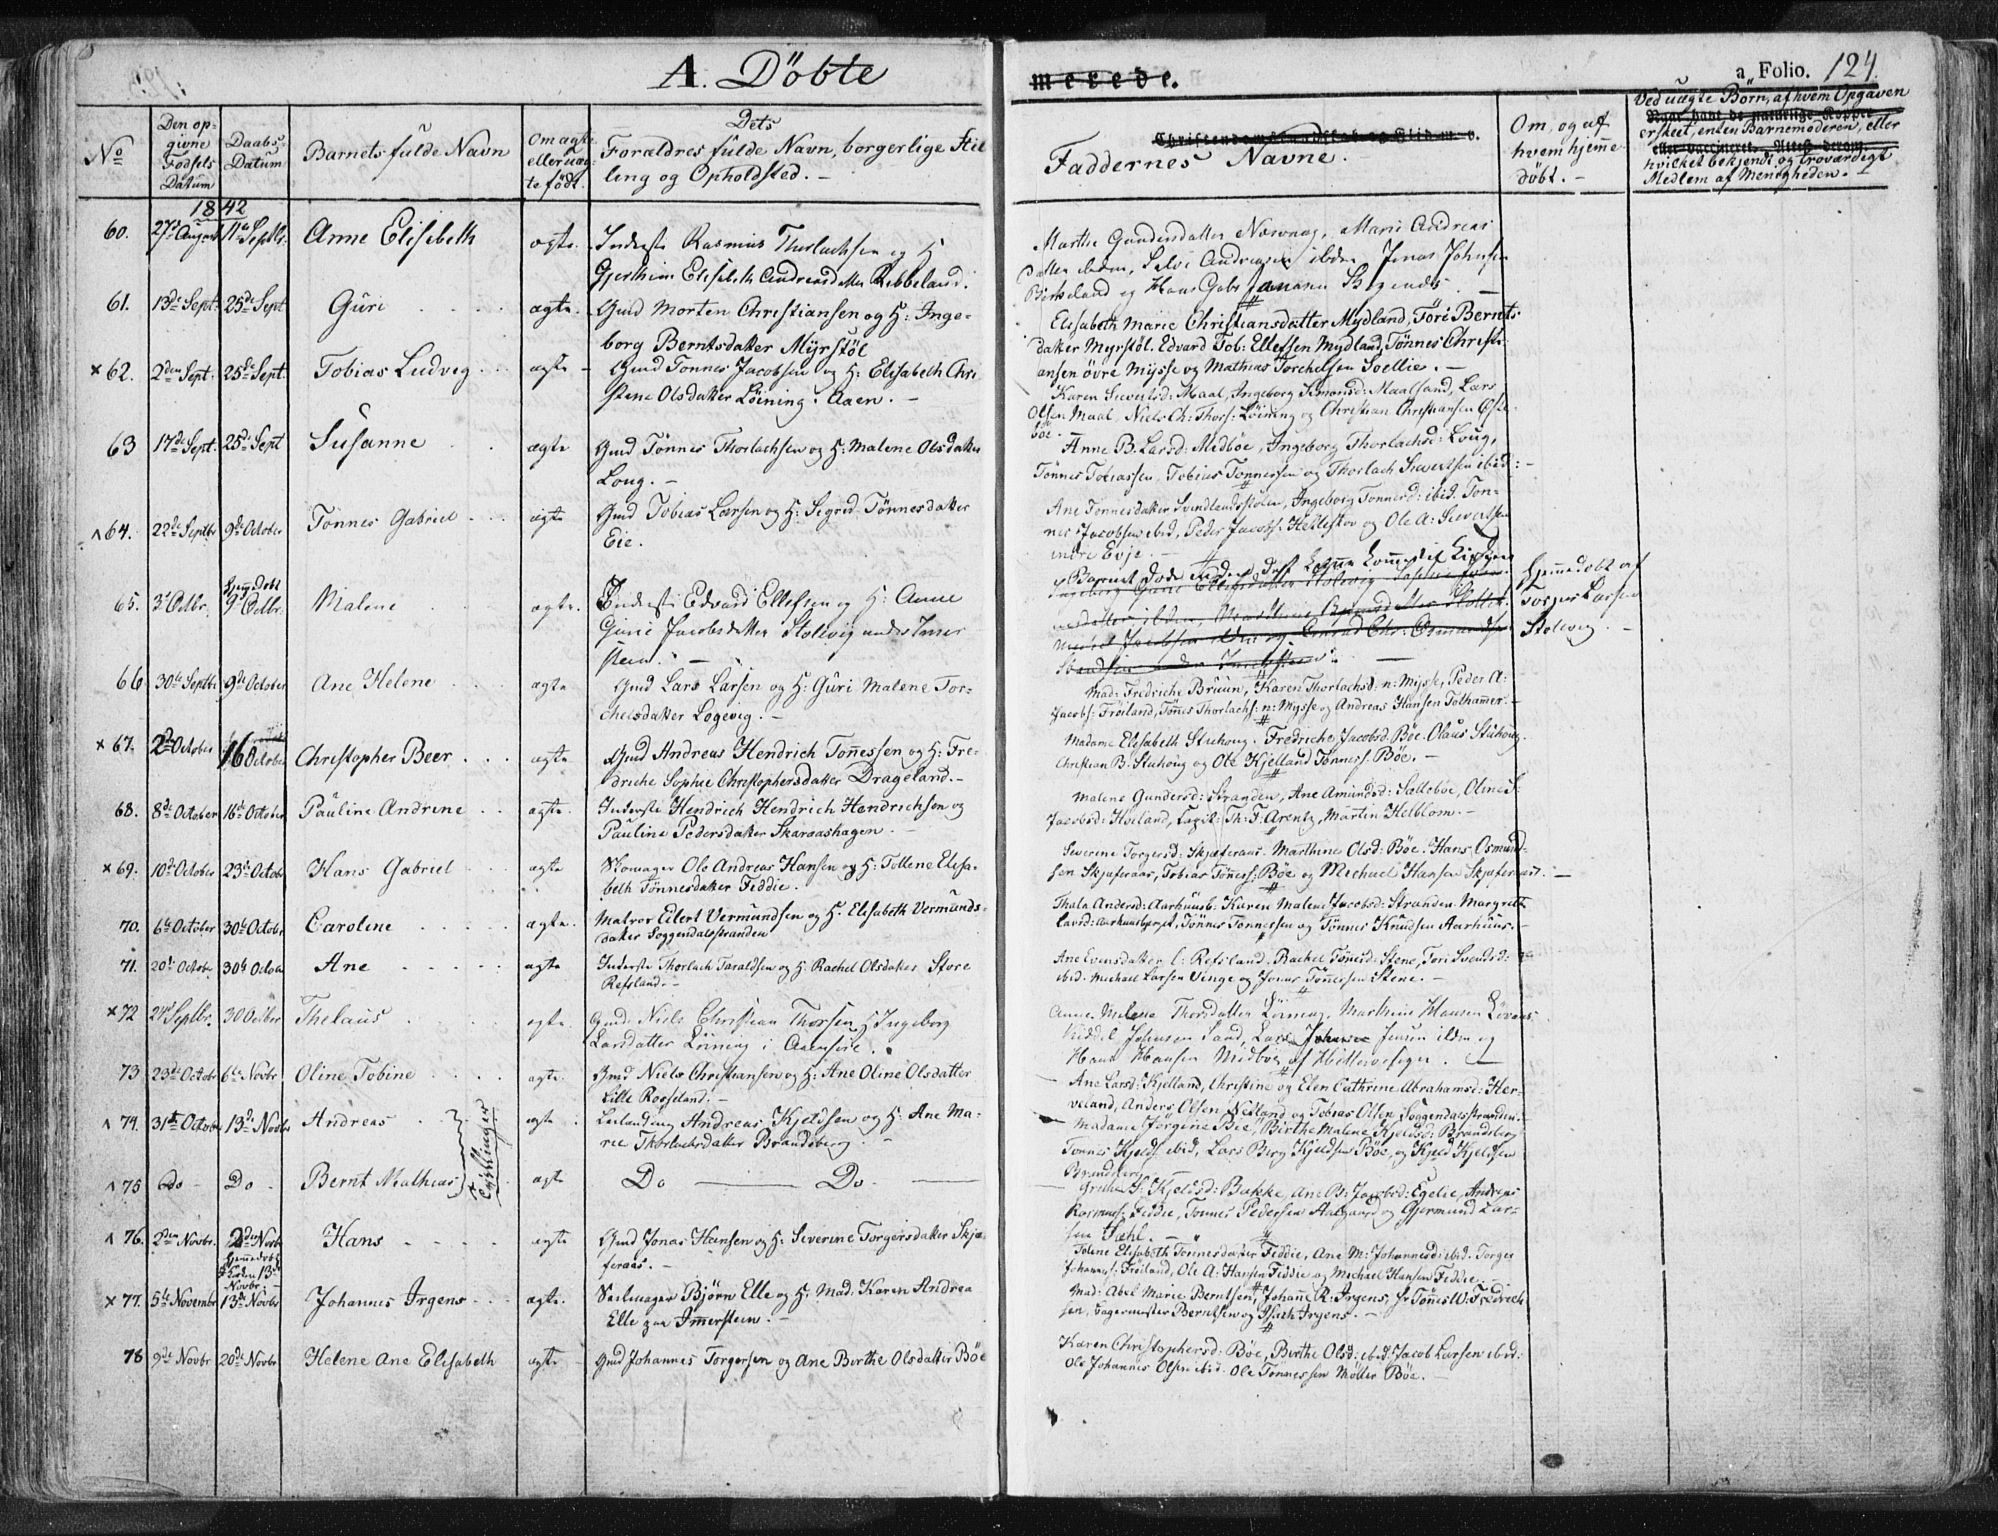 A. Döbte
a Folio. 124.
No
Den opgivne Fødsels Datum
Daabs Datum
Barnets fulde Navn
Om ægte eller uægte født.
Dets Forældres fulde Navn, borgerlige Stilling og Opholdsted. –
Faddernes Navne.
Om, og af hvem hjemme döbt. –
Ved uægte Børn, af hvem Opgaven er skeet, enten Barnemoderen, eller hvilket bekjendt og troværdigt Medlem af Menigheden. –
1842
60. 27de August 11te Septbr. Anne Elisabeth ægte. Inderste Rasmus Thorlachsen og H
Gjertheim Elisabeth Andreasdatter Rebbeland.
Marthe Gundersdatter , Marie Andreas
datter ibidem, Andreasen ibdm Jonas Johnsen
Birkeland og Hans Gabr
61. 13de Sept. 25de Sept Guri ægte. Gmd Morten Christiansen og H: Inge-
borg Berntsdatter Myrstöl
Elisabeth Marie Christiansdatter Mydland, Töri Bernts
datter Myrstöl. Edvard Tob: Ellefsen Mydland, Tönnes Christi-
ansen övre Mysse og Mathias Torchelsen Soellie. –
× 62. 2den Sept. 25de Sept. Tobias Ludvig ægte – Gmd Tonnes Jacobsen og H: Elisabeth Chri
stene Olsdatter Löining. Aaen. –
Karen Sivertsd: Maal, Ingeborg Simonsd: Maalsand, Lars
Olsen Maal, Niels Ch: Thors: Löining og Christian Christiansen Öste
böe. –
63 17de Sept. 25de Sept Susanne ægte Gmd Tönnes Thorlachsen og H: Malene Olsdatter
Loug. –
Anne B. Larsd: Midböe, Ingeborg Thorlachsd: Loug,
Tönnes Tobiassen, Tobias Tonnessen og Thorlach Sivertsen ibid: –
^ 64. 22de Septbr 9de October Tonnes Gabriel ægte Gmd Tobias Larsen og H: Sigrid Tönnesdatter
Eie.
Ane Tonnesdatter Svindlandsstölen, Ingeborg Tonnesd: ibid. Ton-
nes Jacobsen ibid, Peder Jacobs: Hellestov og Ole A: Sivertsen
indre Evje. –
65. 3de Octbr. Hjemdöbt 9de Octbr. Malene ægte. Inderste Edvard Ellefsen og H: Anne
Gurie Jacobsdatter Stolevig under Immer
stein. –
Barnet döde det kunne komme til Kirken
Hjemmedöbt af
Torger Larsen
Stolevig. –
66 30te Septbr 9de October Ane Helene ægte Gmd Lars Larsen og H: Guri Malene Tor-
chelsdatter Logevig. –
Mad: Fredriche Bruun, Karen Thorlachsd: n: Mysse, Peder A:
Jacobs: Fröiland, Tönnes Thorlachs: n: Mysse og Andreas Hansen Tothammer. –
× 67. 2de October 16 October Christopher Beer ægte Gmd Andreas Hendrich Tonnessen og H: Fre-
driche Sophie Christophersdatter Drageland. –
Madame Elisabeth Stuhoug. Fredriche Jacobsd. Böe. Olaus Stuhoug.
Christian B: Stuhoug og Ole Kjelland Tönness: Böe. –
68. 8de October 16de October Pauline Andrine ægte. Inderste Hendrich Hendrich Hendrichsen og
Pauline Pedersdatter Skaraashagen. –
Malene Gundersd: Stranden, Ane Amundsd: Salteböe, Oline S.
Jacobsd: Höiland, Th: F: Arentz, Martin Helblom. –
× 69. 10de October 23de Octobr Hans Gabriel ægte Skomager Ole Andreas Hansen og H: Tollene Elisa-
beth Tönnesdatter Feddie.
Severine Torgersd: Skjæferaas. Marthine Olsd: Böe. Hans Osmund-
sen Skjæferaas, Tobias Tönness: Böe og Michael Hansen Skjæferaas. –
70. 6te October 30te Octobr Caroline ægte. Matros Eilert Vermundsen og H. Elisabeth Vermunds-
datter Soggendalsstranden
Thala Andersd: Aarhuus. Karen Malene Jacobsd: Stranden. Margrethe
Larsd: , Tönnes Tonnessen og Tönnes Knudsen Aarhuus. –
71. 20de Octobr 30te Octbr Ane ægte Inderste Thorlach Taraldsen og H: Rachel Olsdatter Store
Refsland. –
Ane Evensdatter l: Refsland. Rachel Tönnesd: Stene, Tori Svends:
ibid: Michael Larsen Vinge og Jonas Tönnessen Stene. –
× 72 21de Septbr. 30 Octber Thelaus ægte. Gmd: Niels Christian Thorsen H Ingeborg
Larsdatter Löining i Aaensire.
Anne Malene Thorsdatter Löining, Marthine Hansen Lövaas
Johnsen Sand, Lars Jensen ibdm og
Hans Hansen Midboe, af Hitterösogn. –
73 23de Octobr 6te Novbr Oline Tobine ægte. Gmd Niels Christiansen og H: Ane Oline Olsdatter
Lille Rosseland. –
Ane Larsd: Kjelland, Christine og Elen Cathrine Abrahamsd: Her-
veland, Anders Olsen, Nesland og Tobias Olsen, Soggendalsstranden. –
^ 74. 31te Octobr 13de Novbr Andreas Tvillinger ægte Leilænding Andreas Kjeldsen og H: Ane Ma-
rie Thorlachsdatter Brandsberg. –
Madame Jörgine Bie, Birthe Malene Kjeldsd: Brandsberg
Tonnes Kjelds: ibid, Lars Berg Kjeldsen Böe, og Kjeld Kjeldsen
Brandsberg
^ 75 Do – Do – Bernt Mathias ægte Do – Do. –
Grethe S: Kjeldsd: Bakke, Ane B: Jacobsd: Egelie, Andreas
Rasmus: Feddie, Tonnes Pedersen Aalgaard og Gjermund Lar-
sen Sæhl. –
^ 76. 2den Novbr. 2den Novbr Hjemmedöbt i Kirken 13de Novbr. – Hans ægte Gmd Jonas Hansen og H: Severine Torgersdatter Skjæ-
feraas. –
Tolene Elisabeth Tonnesdatter Feddie, Ane M: Johannesd: ibid. Torger
Johannes: Fröiland, Ole A: Hansen Feddie og Michael Hansen Feddie. –
× 77. 5te November 13de Novbr Johannes Irgens ægte. Seilmager Björn Elle og H: Mad: Karen Andrea
Elle paa Immerstein. –
Mad: Abel Marie Berntsen, Johanne R: Irgens, Hr Tönnes W: Fredrich
sen, Berntsen og Irgens. –
78 9de Novbr 20de Novbr Helene Ane Elisabeth ægte – Gmd Johannes Torgersen og Ane Birthe Olsdatter Böe
Karen Christophersd: Böe, Birthe Olsd: ibid: Jacob Larsen ibid:
Ole Johannes Olsen ibid. Ole Tönnessen Möller Böe. –